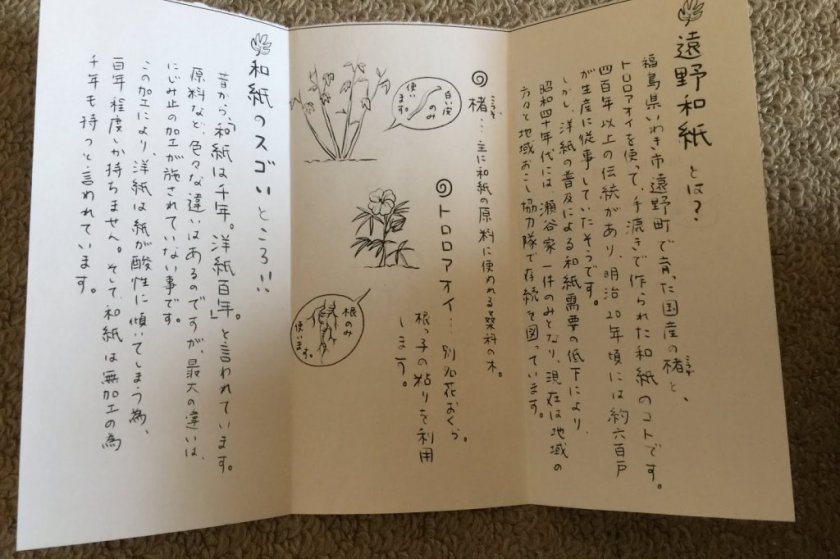 遠野和紙とは？
福島県いわき市遠野町で育った国産の楮と、
こうぞ
トロロアオイを使って、手漉きで作られた和紙のコトです。
四百年以上の伝統があり、明治20年頃には約六百戸
が生産に従事していたそうです。
しかし、洋紙の普及による和紙需要の低下により、
昭和四十年代には瀬谷家一件のみとなり、現在は地域の
方々と地域おこし協力隊で存続を図っています。
楮…主に和紙の原料に使われる桑科の木。
こうぞ
白い皮
のみ
使い
ます。
トロロアオイ…別名花おくら。
根っ子の粘りを利用
します。
根のみ
使います。
和紙のスゴいところ!!
昔から「和紙は千年。洋紙百年」と言われています。
原料など、色々な違いはあるのですが、最大の違いは、
にじみ止の加工が施されていない事です。
この加工により、洋紙は紙が酸性に傾いてしまう為、
百年程度しか持ちません。そして和紙は無加工の為
千年も持つと言われています。